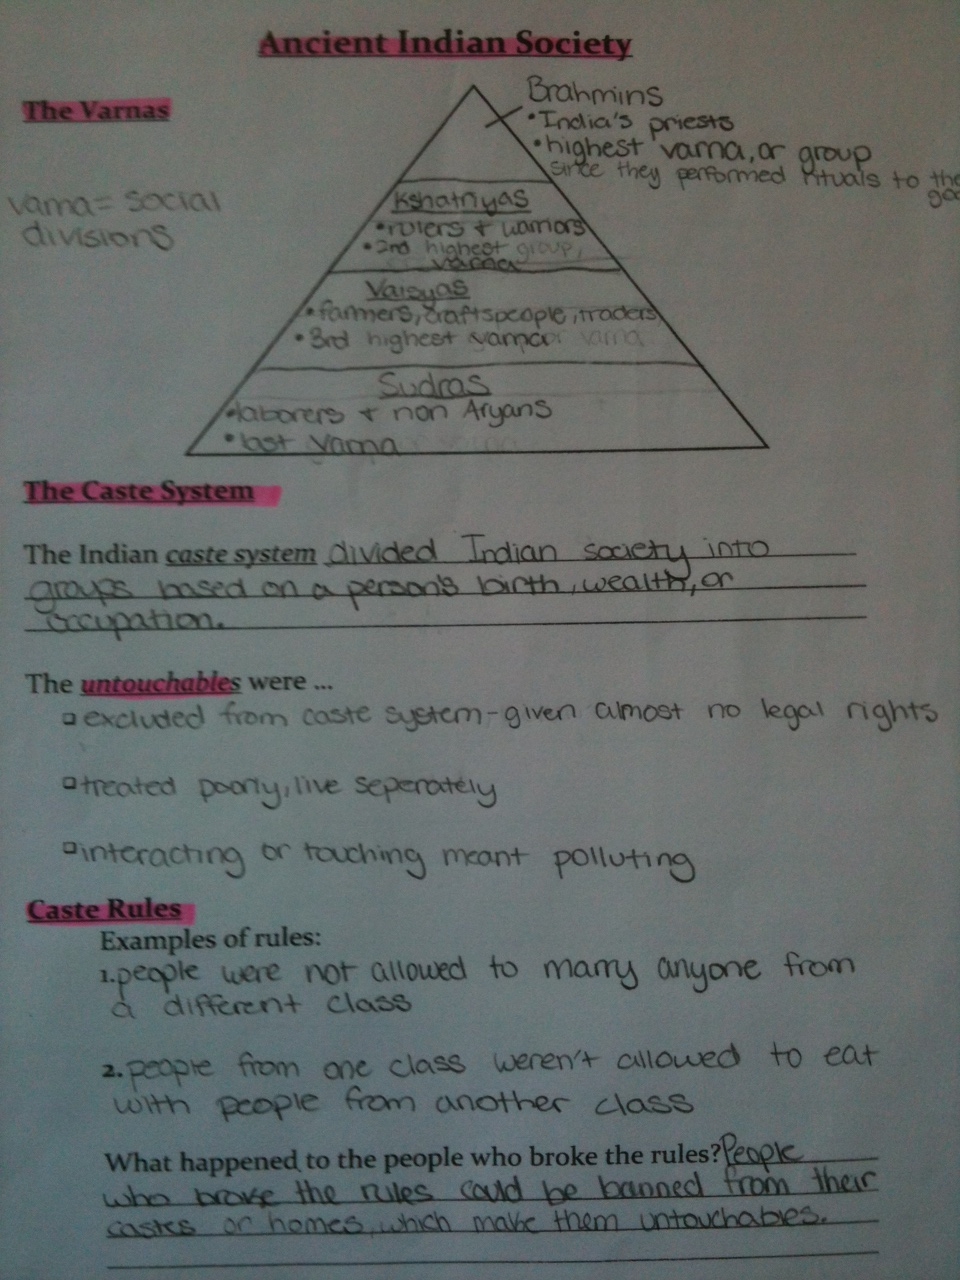 Ancient Indian Society
The Varnas
Brahmins
•India's priests
•highest varna, or group
since they performed rituals to the
varna= social
divisions
Kshatriyas
•rulers + warriors
•2nd highest group,
varna
Vaisyas
•farmers, craftspeople, traders
•3rd highest varna
Sudras
•laborers + non Aryans
•last varna
The Caste System
The Indian caste system divided Indian society into
groups based on a person's birth, wealth, or
occupation.
The untouchables were ...
▫excluded from caste system-given almost no legal rights
▫treated poorly, live seperately
▫interacting or touching meant polluting
Caste Rules
Examples of rules:
1.people were not allowed to marry anyone from
a different class
2.people from one class weren't allowed to eat
with people from another class
What happened to the people who broke the rules? People
who broke the rules could be banned from their
castes or homes, which make them untouchables.